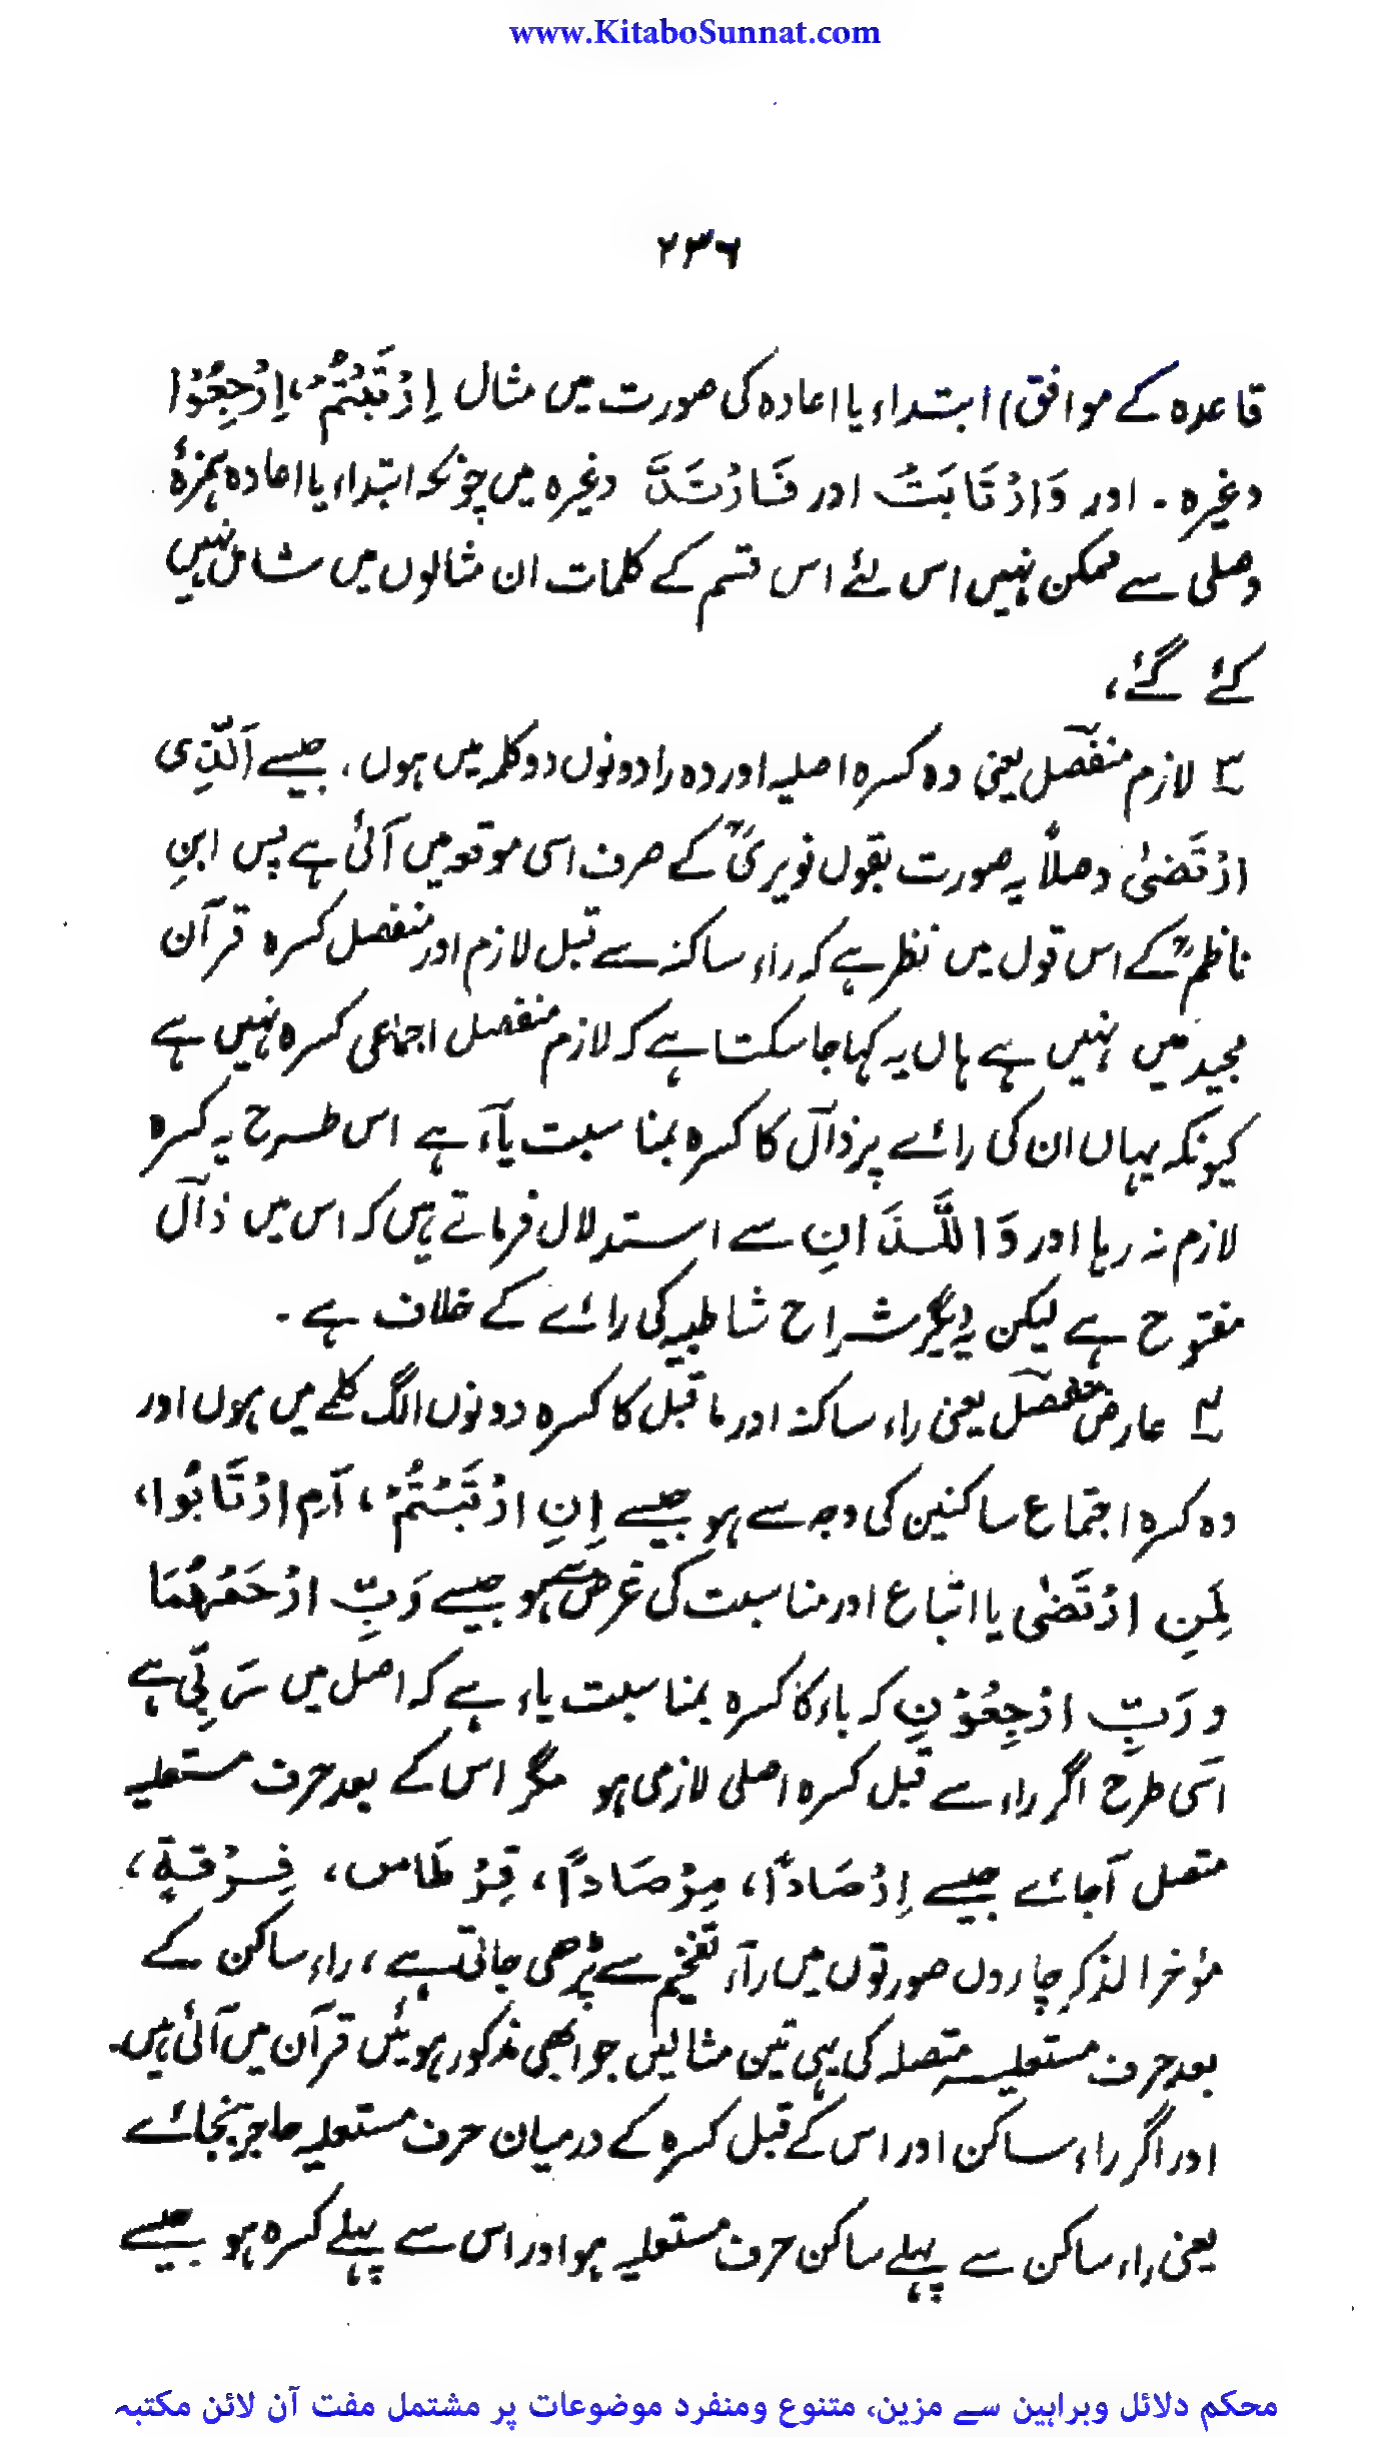 www.KitaboSunnat.com
۲۳۶
قاعدہ کے موافق) ابتداء یا اعادہ کی صورت میں مثال اِرْتَبْتُمْ، اِرْجِعُوْا
وغیرہ ۔ اور وَارْتَابَتْ اور فَارْتَدَّ وغیرہ میں چونکہ ابتداء یا اعادہ ہمزۂ
وصلی سے ممکن نہیں اس لئے اس قسم کے کلمات ان مثالوں میں شامل نہیں
کئے گئے،
۳ لازم منفصل یعنی وہ کسرہ اصلیہ اور وہ را دونوں دو کلمہ میں ہوں، جیسے اَلَّذِی
ارْتَضیٰ وصلاً یہ صورت بقول نویریؒ کے صرف اسی موقعہ میں آئی ہے پس ابنِ
ناظمؒ کے اس قول میں نظر ہے کہ راء ساکنہ سے قبل لازم اور منفصل کسرہ قرآن
مجید میں نہیں ہے ہاں یہ کہا جا سکتا ہے کہ لازم منفصل اجماعی کسرہ نہیں ہے
کیونکہ یہاں ان کی رائے پر ذال کا کسرہ بمناسبت یآء ہے اس طرح یہ کسرہ
لازم نہ رہا اور وَالَّذَانِ سے استدلال فرماتے ہیں کہ اس میں ذآل
مفتوح ہے لیکن یہ دیگر شراح شاطبیہ کی رائے کے خلاف ہے ۔
۴ عارض منفصل یعنی راء ساکنہ اور ماقبل کا کسرہ دونوں الگ کلمے میں ہوں اور
وہ کسرہ اجتماع ساکنین کی وجہ سے ہو جیسے اِنِ ارْتَبْتُمْ، اَمِ ارْتَابُوا،
لِمَنِ ارْتَضٰی یا اتباع اور مناسبت کی غرض سے ہو جیسے رَبِّ ارْحَمْهُمَا
و رَبِّ ارْجِعُوْنِ کہ باء کا کسرہ بمناسبت یاء ہے کہ اصل میں رَبِّی ہے
اسی طرح اگر راء سے قبل کسرہ اصلی لازمی ہو مگر اس کے بعد حرف مستعلیہ
متصل آجائے جیسے اِرْصَادًا، مِرْصَادًا، قِرْطَاس، فِرْقَةٍ،
مؤخر الذکر چاروں صورتوں میں رآء تفخیم سے پڑھی جاتی ہے، راء ساکن کے
بعد حرف مستعلیہ متصلہ کی یہی تین مثالیں جو ابھی مذکور ہوئیں قرآن میں آئی ہیں۔
اور اگر راء ساکن اور اس کے قبل کسرہ کے درمیان حرف مستعلیہ حاجز بنجائے
یعنی راء ساکن سے پہلے ساکن حرف مستعلیہ ہو اور اس سے پہلے کسرہ ہو جیسے
محکم دلائل وبراہین سے مزین، متنوع ومنفرد موضوعات پر مشتمل مفت آن لائن مکتبہ